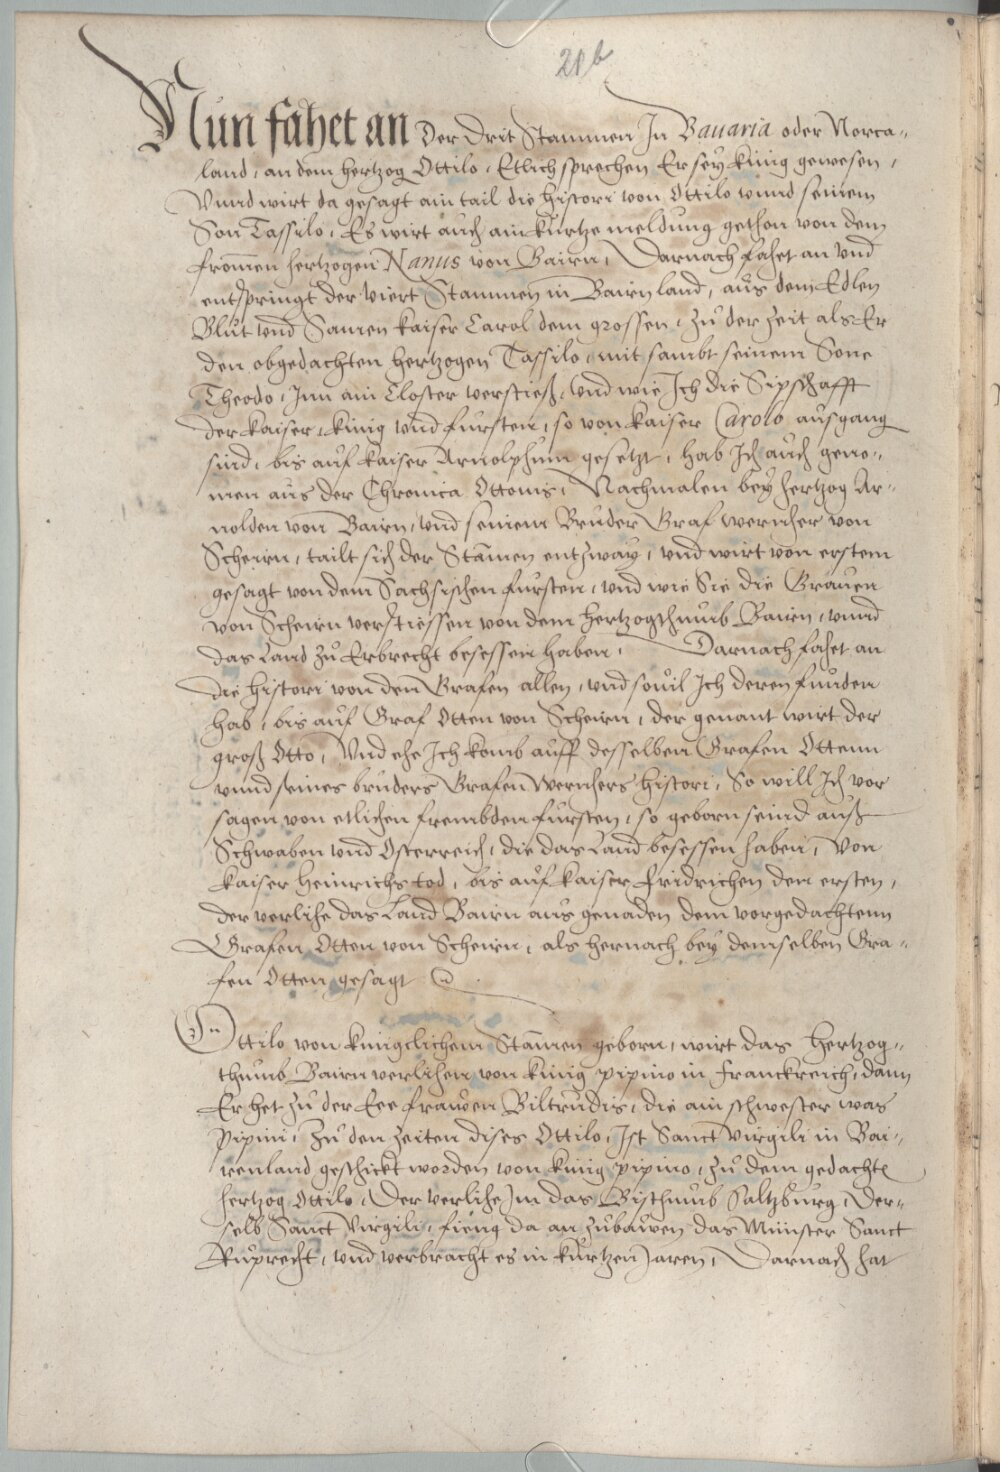 21b
Nun fahet an Der Drit Stammen In Bavaria oder Norca-
land, an dem hertzog Ottilo, Etlich sprechen Er sey kunig gewesen,
Unnd wirt da gesagt ain tail die histori von Ottilo vnnd seinem
Son Tassilo, Es wirt auch ain kurtze meldung gethon von dem
fromen hertzogen Nanus von Bairn, Darnach fahet an vnd
entspringt der viert Stammen in Bairnland, aus dem Edlen
Blut vnd Samen kaiser Carol dem grossen, zu der zeit als Er
den obgedachten hertzogen Tassilo, mit sambt seinem Sone
Theodo, Inn ain Closter verstieß, vnd wie Ich die Sipschafft
der kaiser, kunig vnd fursten, so von kaiser Carolo ausgang
sind, bis auf kaiser Arnolphum gesetzt, hab Ich auch geno-
men aus der Chronica Ottonis, Nachmalen bey hertzog Ar-
nolden von Bairn, vnd seinem Bruder Graf Wernher von
Scheirn, tailt sich der Stamen entzway, vnd wirt von erstem
gesagt von dem Sachsischen fursten, vnd wie Sie die Graven
von Scheirn verstiessen von dem Hertzogthumb Bairn, vnnd
das Land zu Erbrecht besessen haben, Darnach fahet an
die histori von den Grafen allen, vnd sovil Ich deren funden
hab, bis auf Graf Otten von Scheirn, der genant wirt der
groß Otto, Und ehe Ich komb auff desselben Grafen Ottenn
vnnd seines bruders Grafen Wernhers histori, So will Ich vor
sagen von etlichen frembden fursten, so geborn seind auß
Schwaben vnd Osterreich, die das Land besessen haben, Von
kaiser Heinrichs tod, bis auf kaiser Fridrichen den ersten,
der verlihe das Land Bairn aus genaden dem vorgedachtenn
Grafen Otten von Scheirn, als hernach bey demselben Gra-
fen Otten gesagt
Ottilo von kunigclichem Stamen geborn, wirt das Hertzog-
thumb Bairn verlihen von kunig Pipino in Franckreich, dann
Er het zu der Eee frawen Biltrudis, die ain schwester was
Pipini, Zu den zeiten dises Ottilo, Ist Sanct Virgili in Bai-
renland geschickt worden von kunig Pipino, zu dem gedachten
hertzog Ottilo, Der verlihe Im das Bisthumb Saltzburg, Der-
selb Sanct Virgili, fieng da an zubawen das Munster Sanct
Ruprecht, vnd verbracht es in kurtzen Jaren, Darnach hat